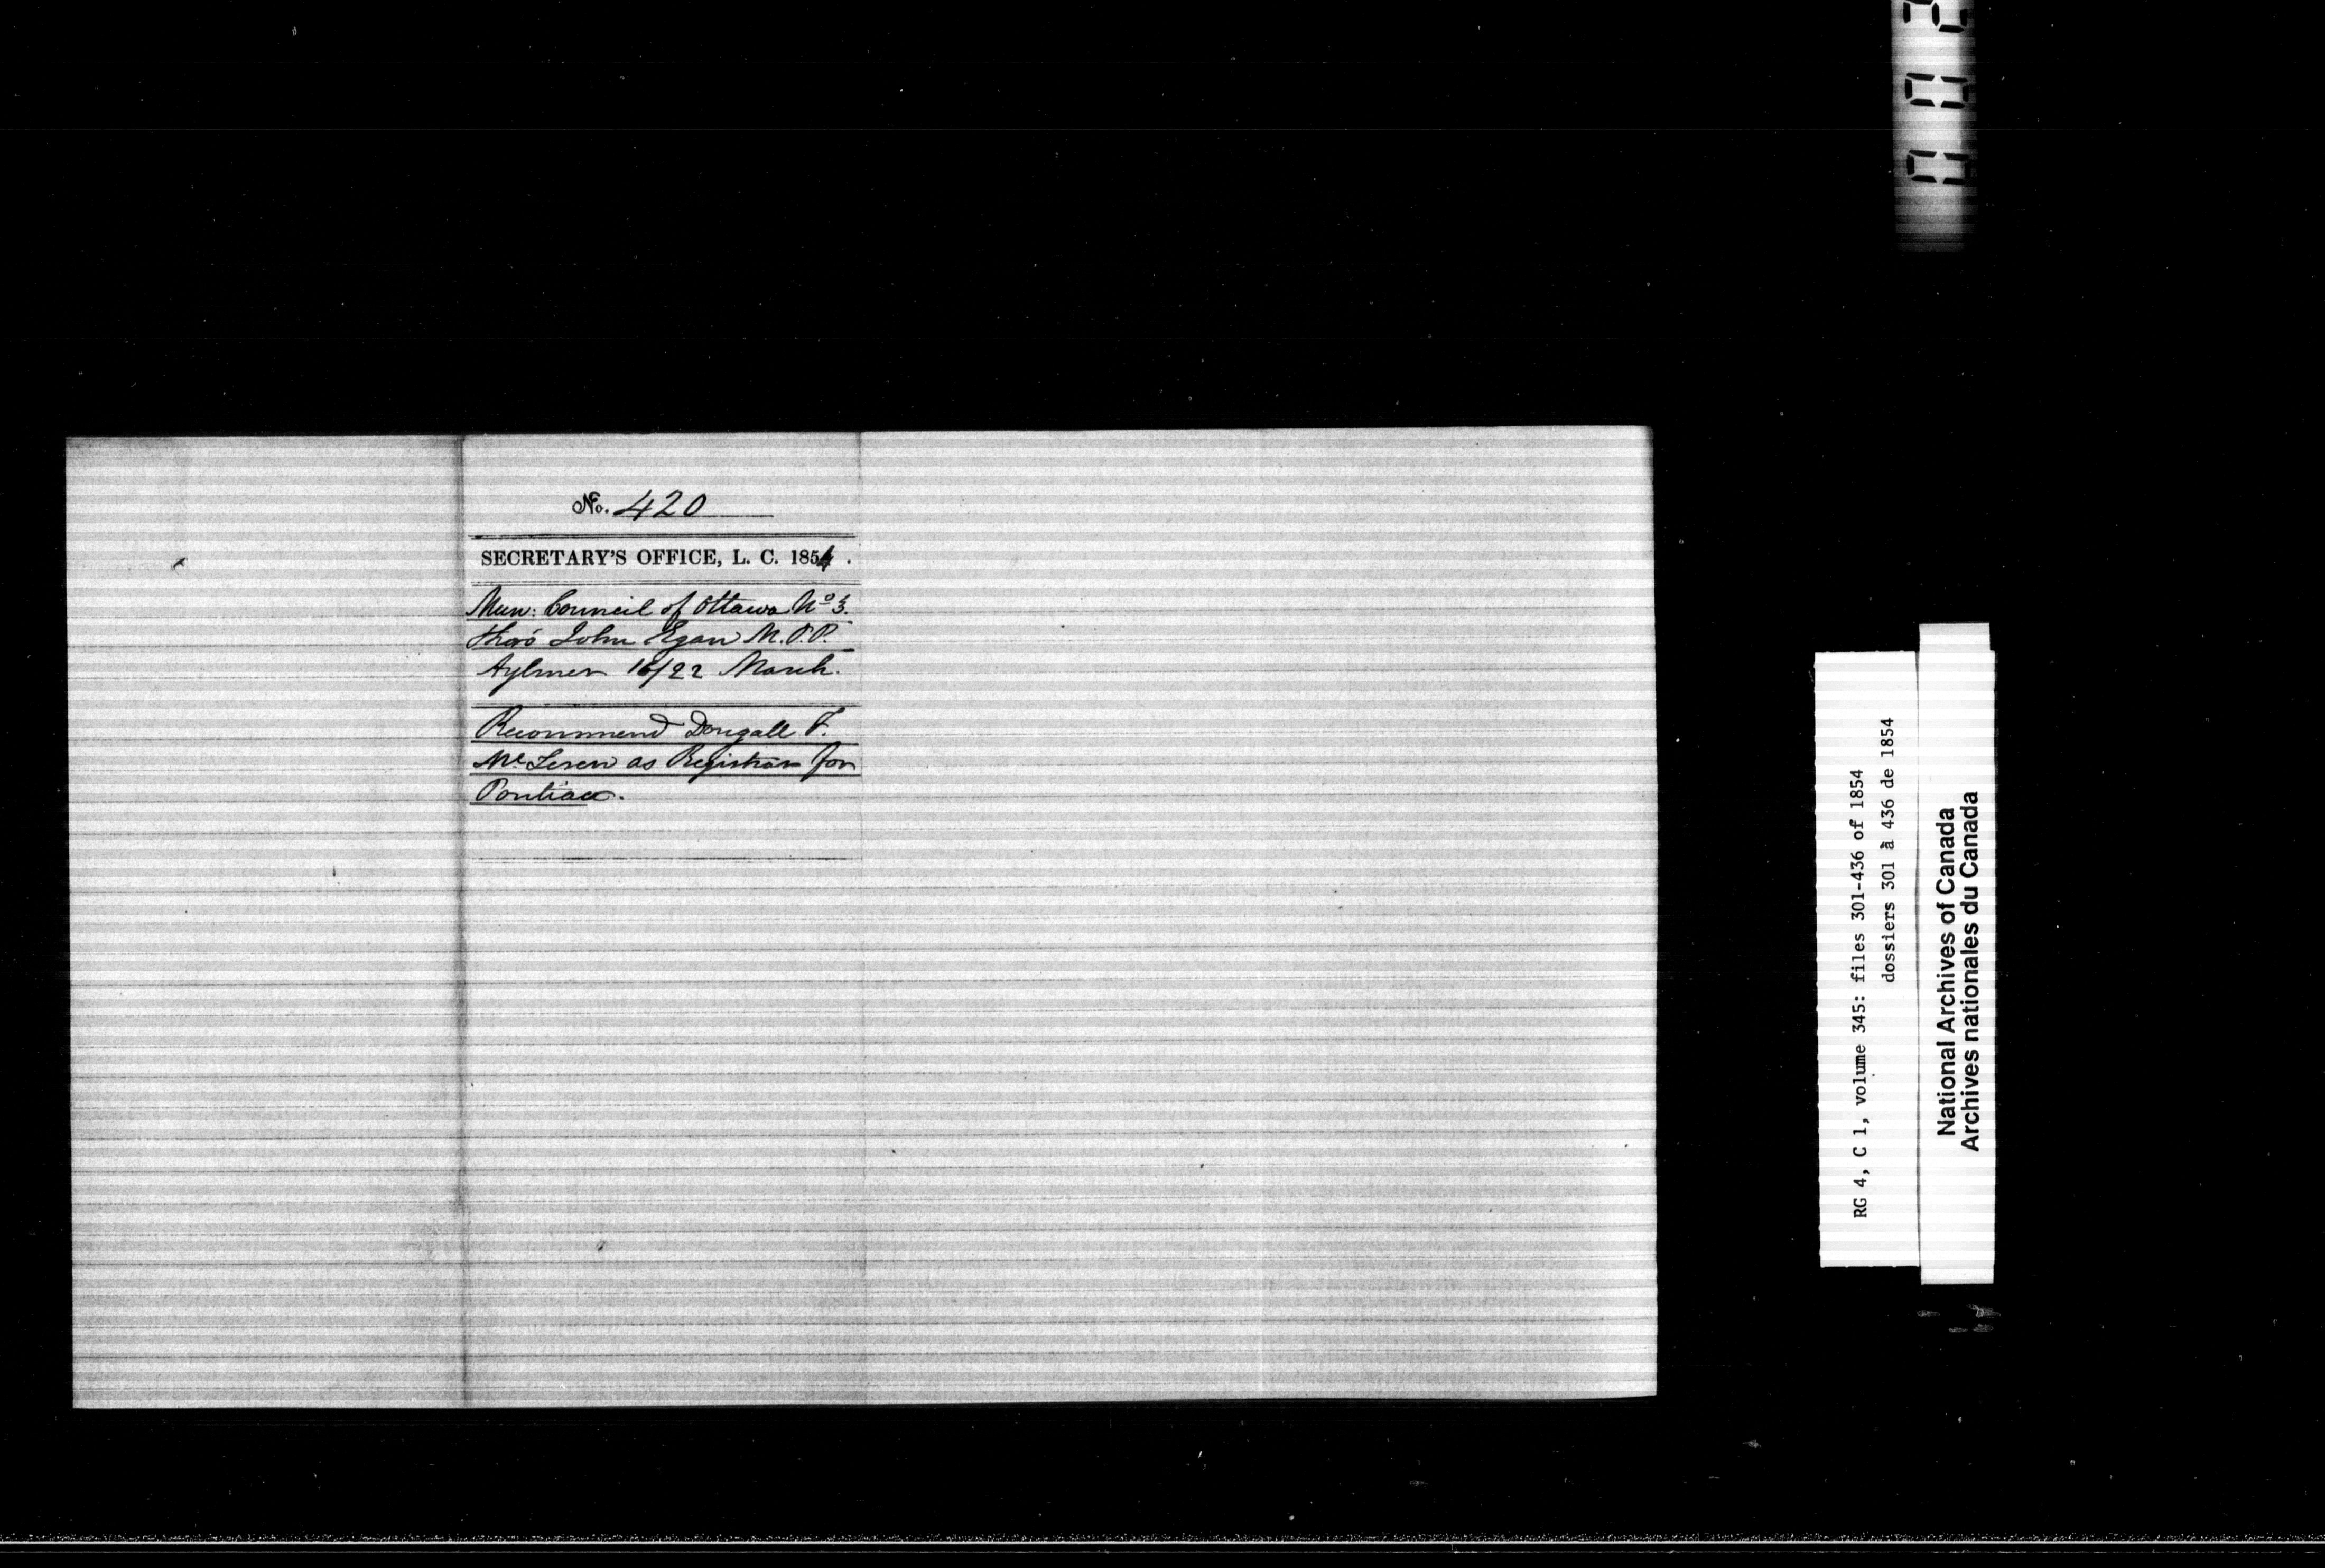 No. 420
SECRETARY'S OFFICE, L. C. 1854.
Mun: Council of Ottawa No 3.
thro' John Egan M.P.P.
Aylmer 16/22 March.
Recommend Dougall F.
McLeren as Registrar for
Pontiac.
RG 4, C 1, volume 345: files 301-436 of 1854
dossiers 301 à 436 de 1854
National Archives of Canada
Archives nationales du Canada